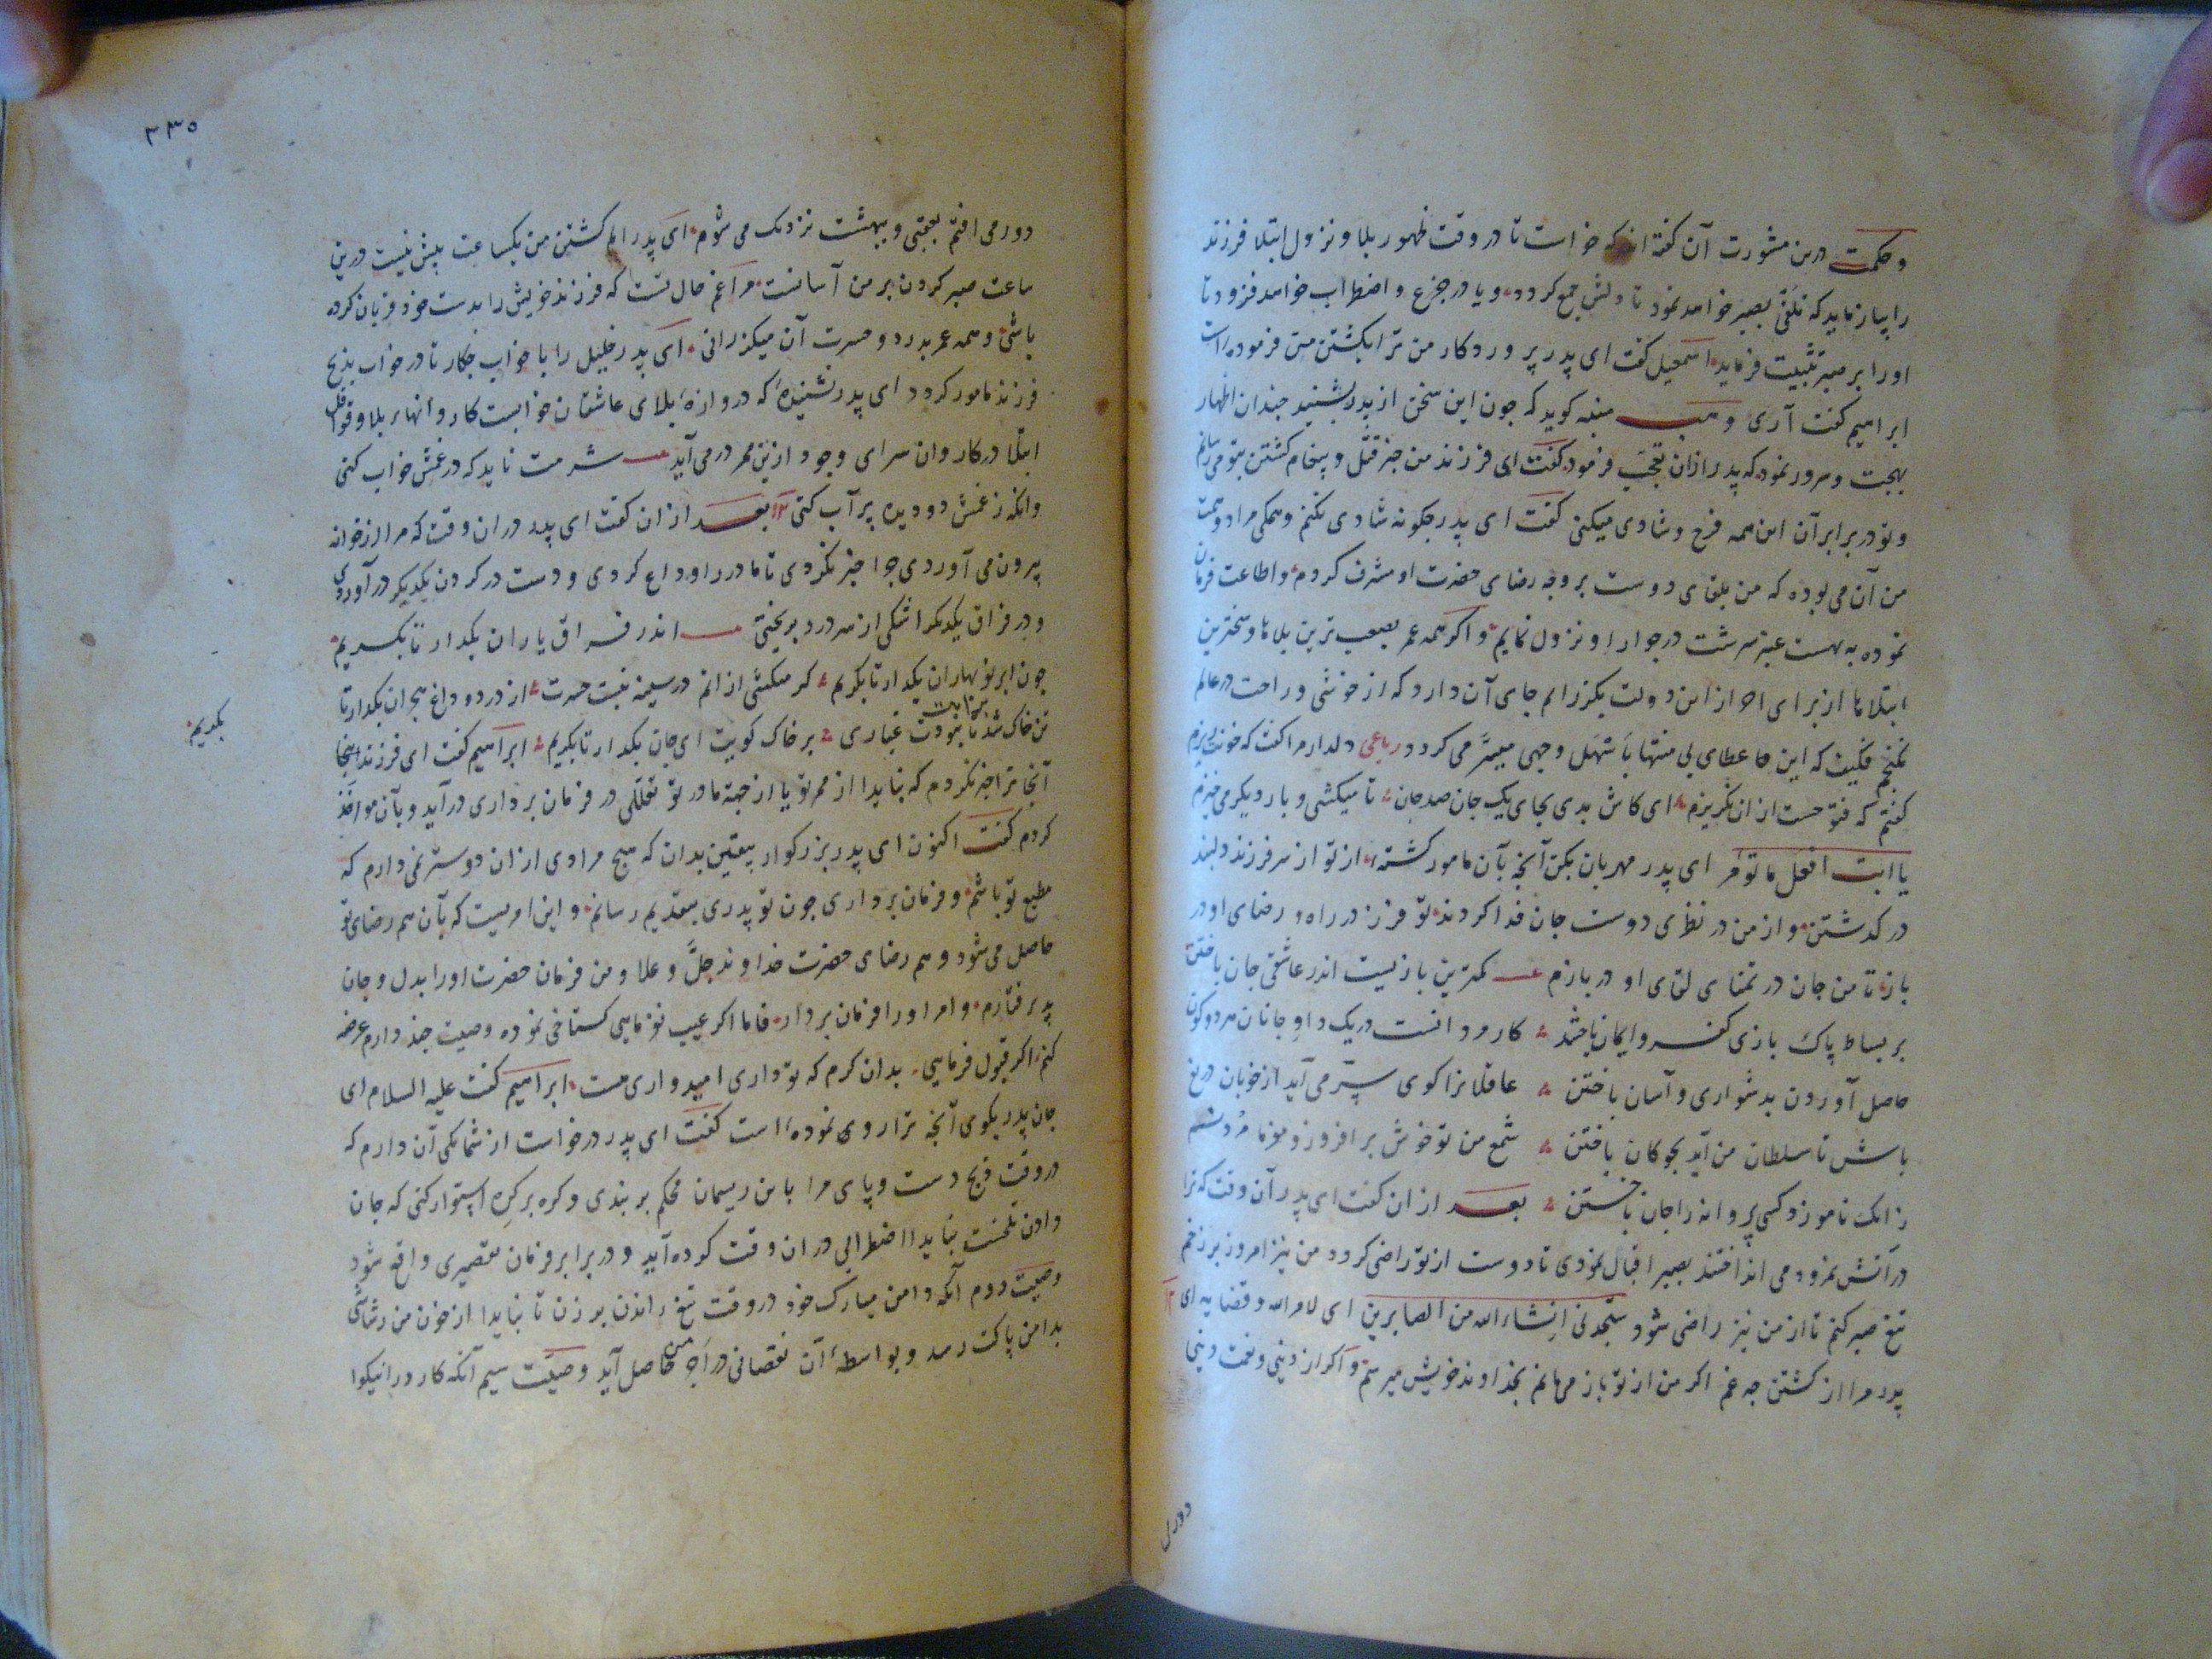 و حکمت درین مشورت آن گفته‌اند که خواست تا در وقت ظهور بلا و نزول ابتلا فرزند
را بیازماید که تلقّی بصبر خواهد نمود تا دلش جمع کردد و یا در جزع و اضطراب خواهد فزود تا
او را بر صبر تثبیت فرماید اسمعیل گفت ای پدر پروردکار من ترا بکشتن من فرموده است
ابراهیم گفت آری و منبه کوید که چون این سخن از پدر بشنید چندان اظهار
بهجت و سرور نمود که پدر از ان تعجّب فرمود گفت ای فرزند من خبر قتل و پیغام کشتن بتو می رسانم
و تو در برابر آن این همه فرح و شادی میکنی گفت ای پدر چکونه شادی نکنم و همکی مراد و همت
من آن می بوده که من بلقای دوست بر وجه رضای حضرت او مشرف کردم و اطاعت فرمان
نموده به بهشت عنبر سرشت در جوار او نزول نمایم و اکر همه عمر بصعب ترین بلاها و سخترین
ابتلاها از برای احراز این دولت بکذرانم جای آن دارد که از خوشی و راحت در عالم
نکنجم فکیف که این عطای بی منتها باَسْهَل وجهی میسّر می کردد رباعی دلدار مرا گفت که خونت بریزم
گفتم که فتوحست از ان نکریزم ای کاش بدی بجای یک جان صد جان تا میکشی و بار دیکر می خیزم
یا ابت افعل ما تؤمر ای پدر مهربان بکن آنچه بآن مامور کشتهٔ از تو از سر فرزند دلبند
در کذشتن و از من در نظر دوست جان فدا کردند تو فرزند در راه رضای او در
باز تا من جان در تمنای لقای او در بازم کمترین بازیست اندر عاشقی جان باختن
بر بساط پاک بازی کفر و ایمان باختن کار مردانست در یک داو جانان هر دو کون
حاصل آوردن بدشواری و آسان باختن عاقلانرا کوی سر می آید از خوبان دریغ
باش تا سلطان من آید بچوکان باختن شمع من تو خوش برافروز و
زانک ناموزد کسی پروانه را جان باختن بعد از ان گفت ای پدر آن وقت که ترا
در آتش نمرود می انداختند بصبر اقبال نمودی تا دوست از تو راضی کردد من نیز امروز بر زخم
تیغ صبر کنم تا از من نیز راضی شود ستجدنی انشاءالله من الصابرین ای لامر الله و قضایه ای
پدر مرا از کشتن چه غم اکر من از تو باز می مانم بخداوند خویش میرسم و اکر از دنیی و نعمت دنیا
دور می
۳۳۵
دور می افتم بعقبی و ببهشت نزدیک می شوم ای پدر الم کشتن من یکساعت بیش نیست درین
ساعت صبر کردن بر من آسانست مرا غم حال تست که فرزند خویش را بدست خود قربان کرده
باشی و همه عمر بدرد و حسرت آن میکذرانی ای پدر خلیل را با خواب چکار تا در خواب بذبح
فرزند مامور کردد ای پدر نشنیدهٔ که دروازهٔ بلای عاشقان خوابست کار و انهاء بلا و قوافل
ابتلا در کاروان سرای وجود ازین ممر درمی آید شرمت ناید که در غمش خواب کنی
وانکه ز غمش دو دیده پر آب کنی بعد از ان گفت ای پدر در ان وقت که مرا از خانه
بیرون می آوردی چرا خبر نکردی تا مادر را وداع کردمی و دست در کردن یکدیکر در آوردمی
و در فراق یکدیکر اشکی از سر درد بریختمی اندر فراق یاران بکذار تا بکریم
چون ابر نوبهاران بکذار تا بکریم کر میکشی از انم در سینه نیست حسرت از درد و داغ هجران بکذار تا
بکریم
تن خاک شد تا نبودت غباری بر خاک کویت ای جان بکذار تا بکریم ابراهیم گفت ای فرزند اینجا
آنجا ترا خبر نکردم که نباید از مهر تو یا از جهة مادر تو تعللی در فرمان برداری درآید و بآن مواخذ
کردم گفت اکنون ای پدر بزرکوار بیقین بدان که هیچ مرادی از ان دوستر نمی دارم که
مطیع تو باشم و فرمان برداری چون تو پدری بتقدیم رسانم و این امریست که بآن هم رضای تو
حاصل می شود و هم رضای حضرت خداوند جلّ و علا و من فرمان حضرت او را بدل و جان
پذیرفتارم و امر او را فرمان بردار فاما اکر عیب نفرمایی کستاخی نموده وصیت چند دارم عرضه
کنم اکر قبول فرمایی بدان کرم که تو داری امیدواری هست ابراهیم گفت علیه السلام ای
جان پدر بکوی آنچه ترا روی نموده است گفت ای پدر درخواست از شما یکی آن دارم که
در وقت ذبح دست و پای مرا باین ریسمان محکم بر بندی و کره بر کره استوار کنی که جان
دادن تلخست نباید اضطرابی در ان وقت کرده آید و در برابر فرمان تقصیری واقع شود
وصیت دوم آنکه دامن مبارک خود در وقت تیغ راندن بر زن تا نباید از خون من رشاشی
بدامن پاکت رسد و بواسطهٔ آن نقصانی در اجر من حاصل آید وصیت سیم آنکه کارد را نیکو